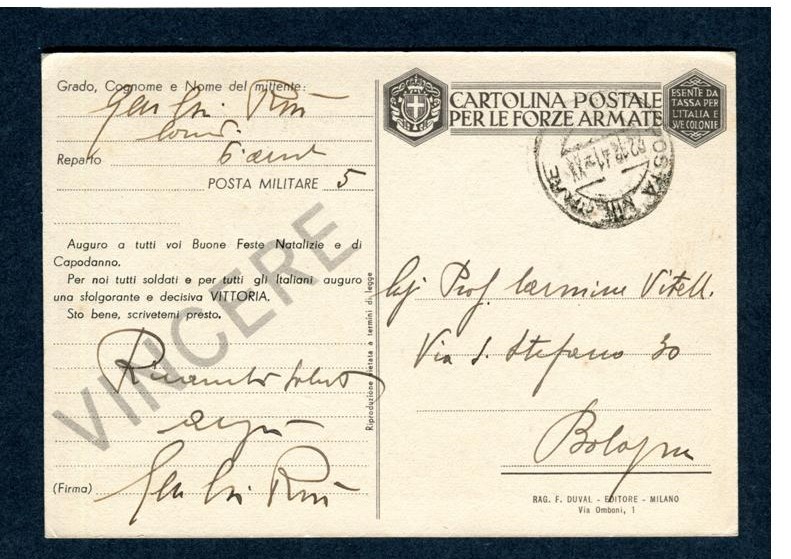 Grado, Cognome e Nome del mittente:
Reparto 6ª
POSTA MILITARE 5
Auguro a tutti voi Buone Feste Natalizie e di
Capodanno.
Per noi tutti soldati e per tutti gli Italiani auguro
una sfolgorante e decisiva VITTORIA.
Sto bene, scrivetemi presto.
VINCERE
(Firma)
Riproduzione vietata a termini di legge
CARTOLINA POSTALE
PER LE FORZE ARMATE
ESENTE DA
TASSA PER
L'ITALIA E
SVE COLONIE
POSTA MILITARE
Prof. Carmine Vitell.
Via S. Stefano 30
Bologna
RAG. F. DUVAL - EDITORE - MILANO
Via Omboni, 1